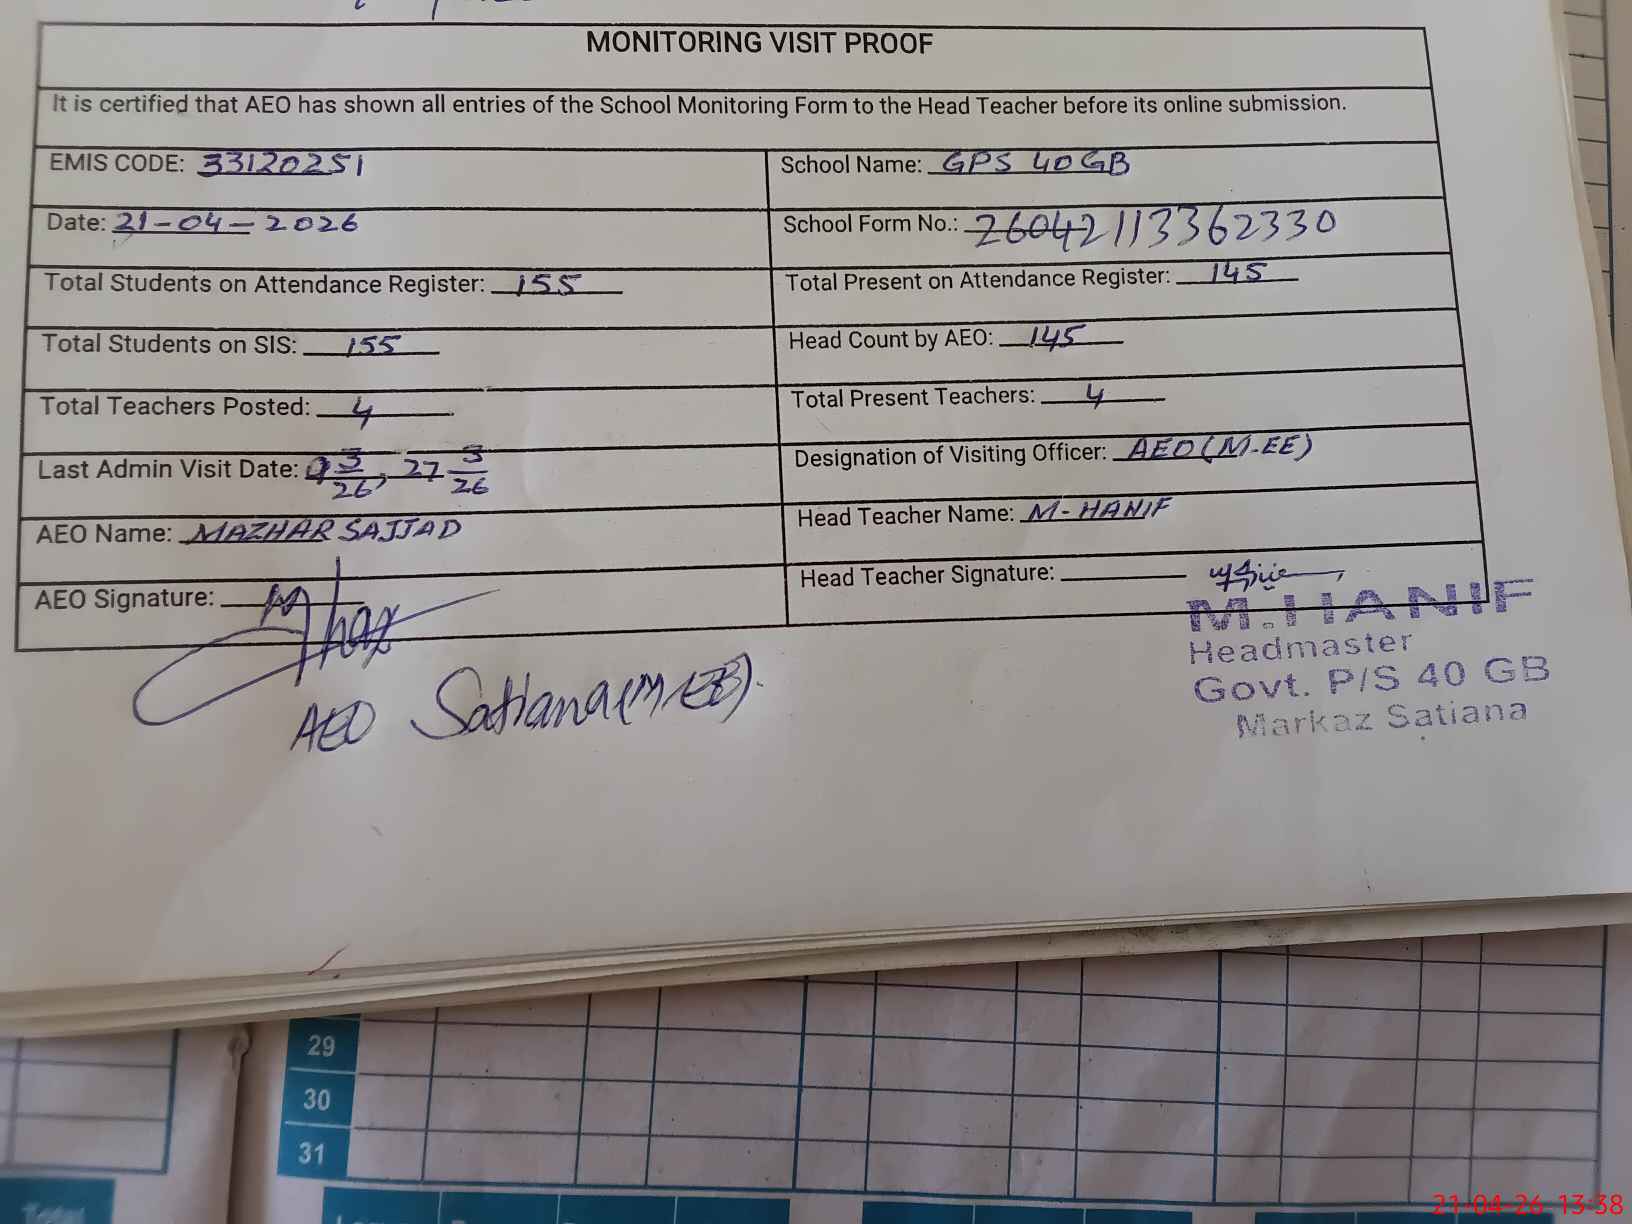 MONITORING VISIT PROOF
It is certified that AEO has shown all entries of the School Monitoring Form to the Head Teacher before its online submission.
EMIS CODE: 33120251
School Name: GPS 40 GB
Date: 21-04-2026
School Form No.: 26042113362330
Total Students on Attendance Register: 155
Total Present on Attendance Register: 145
Total Students on SIS: 155
Head Count by AEO: 145
Total Teachers Posted: 4
Total Present Teachers: 4
Last Admin Visit Date: 9 3/26, 27 3/26
Designation of Visiting Officer: AEO (M-EE)
AEO Name: MAZHAR SAJJAD
Head Teacher Name: M-HANIF
AEO Signature:
Head Teacher Signature:
AEO Satiana (M-EE).
M. HANIF
Headmaster
Govt. P/S 40 GB
Markaz Satiana
29
30
31
Total
21-04-26 13:38